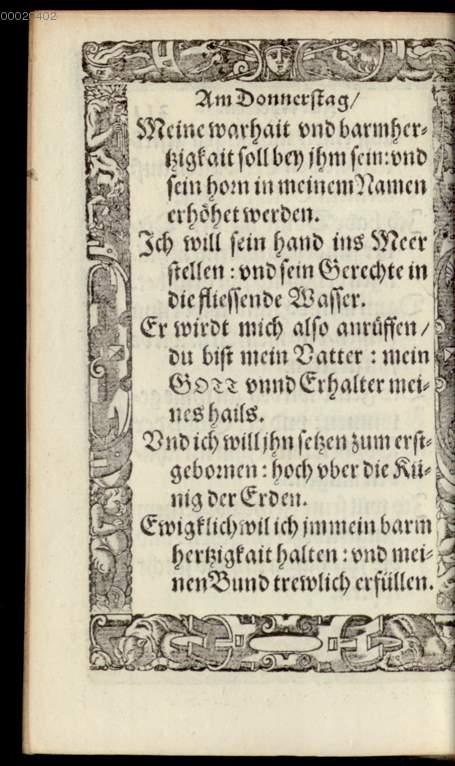 00029402
Am Donnerstag/
Meine warhait vnd barmher-
tzigkait soll bey jhm sein: vnd
sein horn in meinem Namen
erhöhet werden.
Jch will sein hand ins Meer
stellen : vnd sein Gerechte in
die fliessende Wasser.
Er wirdt mich also anrüffen/
du bist mein Vatter : mein
GOTT vnnd Erhalter mei-
nes hails.
Vnd ich will jhn setzen zum erst-
gebornen : hoch vber die Kü-
nig der Erden.
Ewigklich wil ich jm mein barm
hertzigkait halten : vnd mei-
nen Bund trewlich erfüllen.